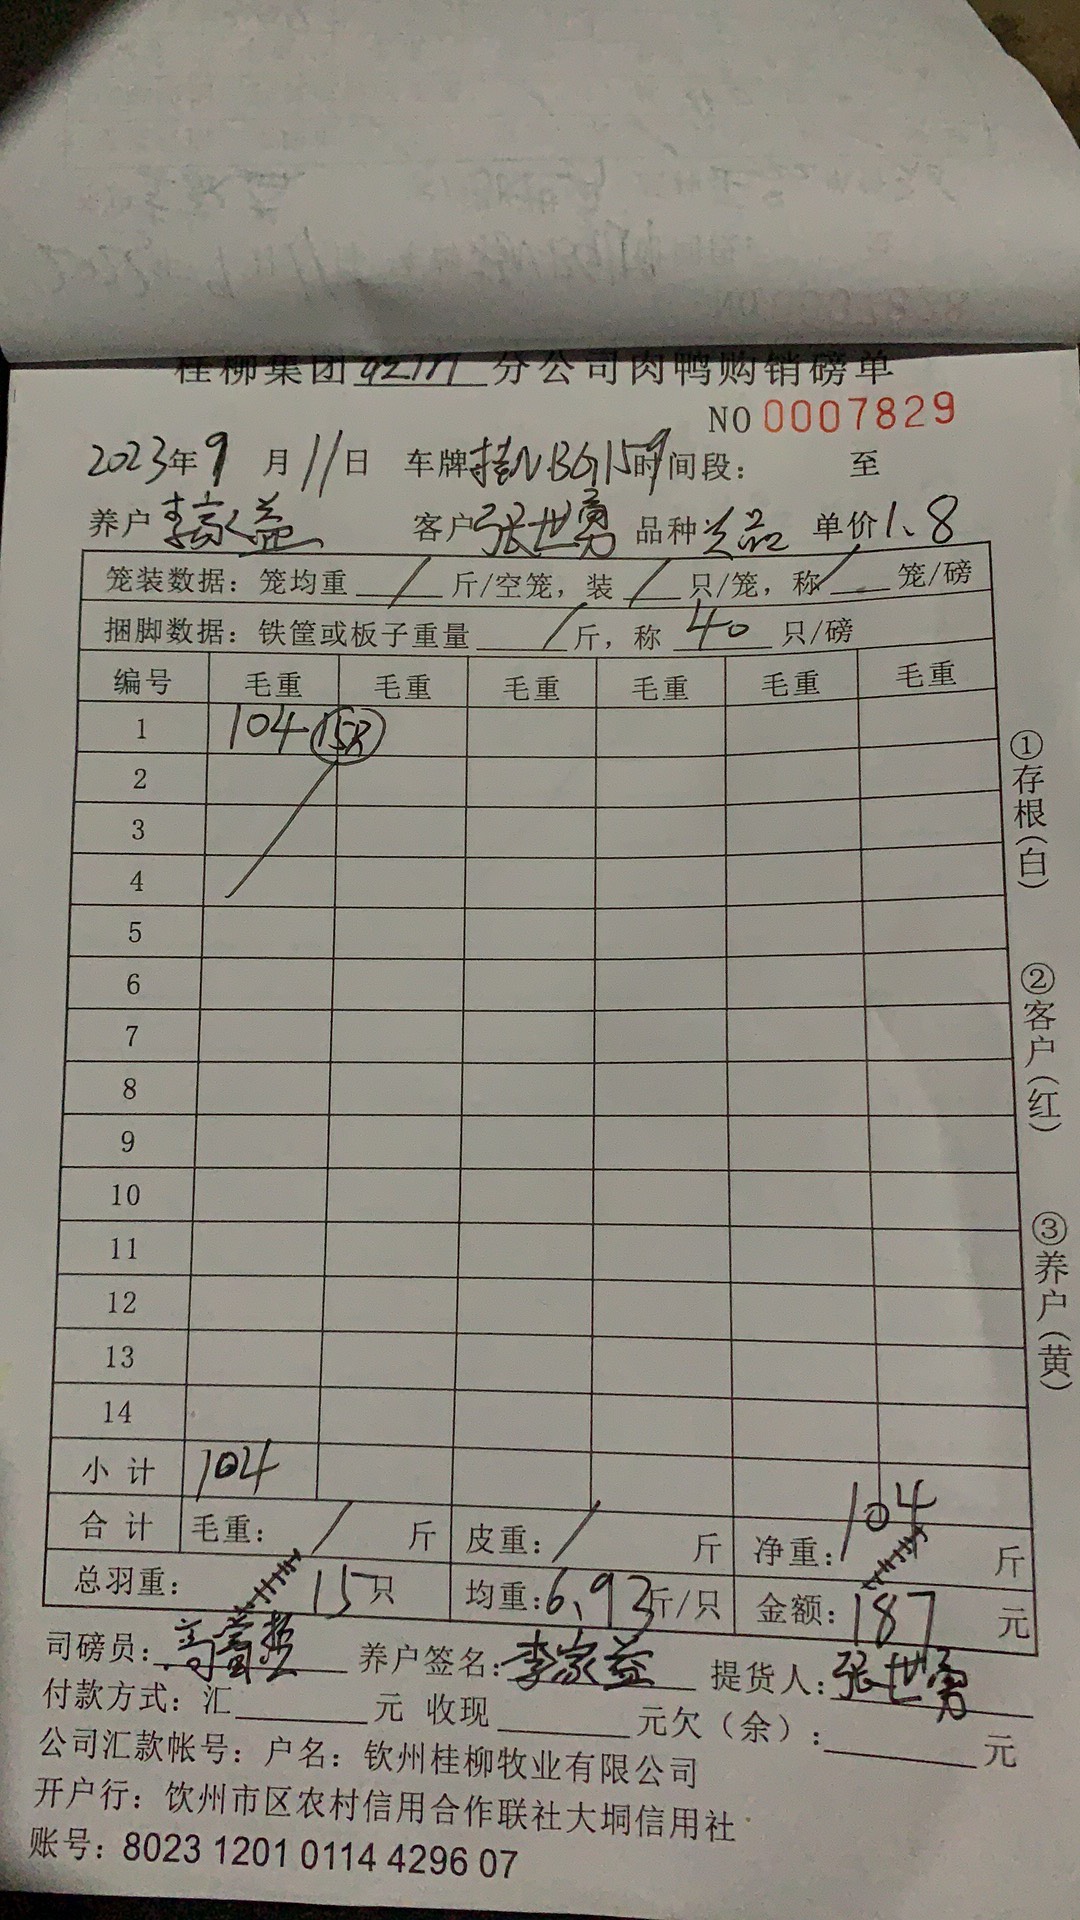 桂柳集团 分公司肉鸭购销磅单
NO 0007829
2023年9月11日 车牌桂NBG159时间段： 至
养户李家益 客户张世勇 品种 单价1.8
笼装数据：笼均重/斤/空笼，装/只/笼，称/笼/磅
捆脚数据：铁筐或板子重量/斤，称40只/磅
编号 毛重 毛重 毛重 毛重 毛重 毛重
1 104 15只
2
3
4
5
6
7
8
9
10
11
12
13
14
小计 104
合计 毛重：/斤 皮重：/斤 净重：104斤
总羽重：15只 均重：6.93斤/只 金额：187元
司磅员： 养户签名：李家益 提货人：张世勇
付款方式：汇 元 收现 元欠（余）： 元
公司汇款帐号：户名：钦州桂柳牧业有限公司
开户行：饮州市区农村信用合作联社大垌信用社
账号：8023 1201 0114 4296 07
①存根（白）
②客户（红）
③养户（黄）